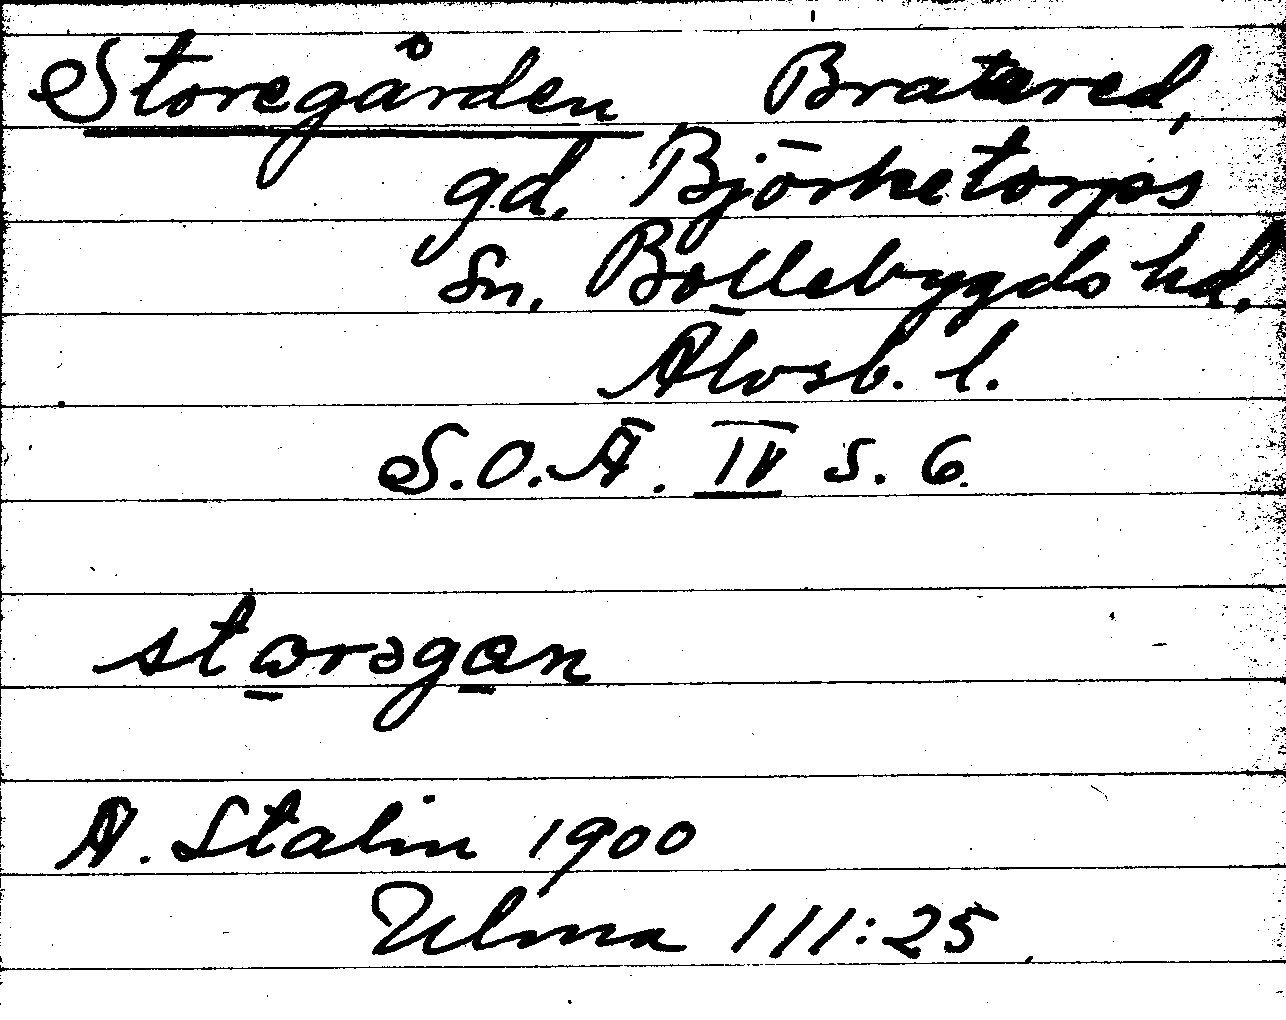 Storegården Bratered,
gd. Björketorps
sn. Bollebygds hd.
Älvsb. l.
S.O.Ä. IV s. 6.
stωrəgɑn
A. Stalin 1900
Ulma 111:25